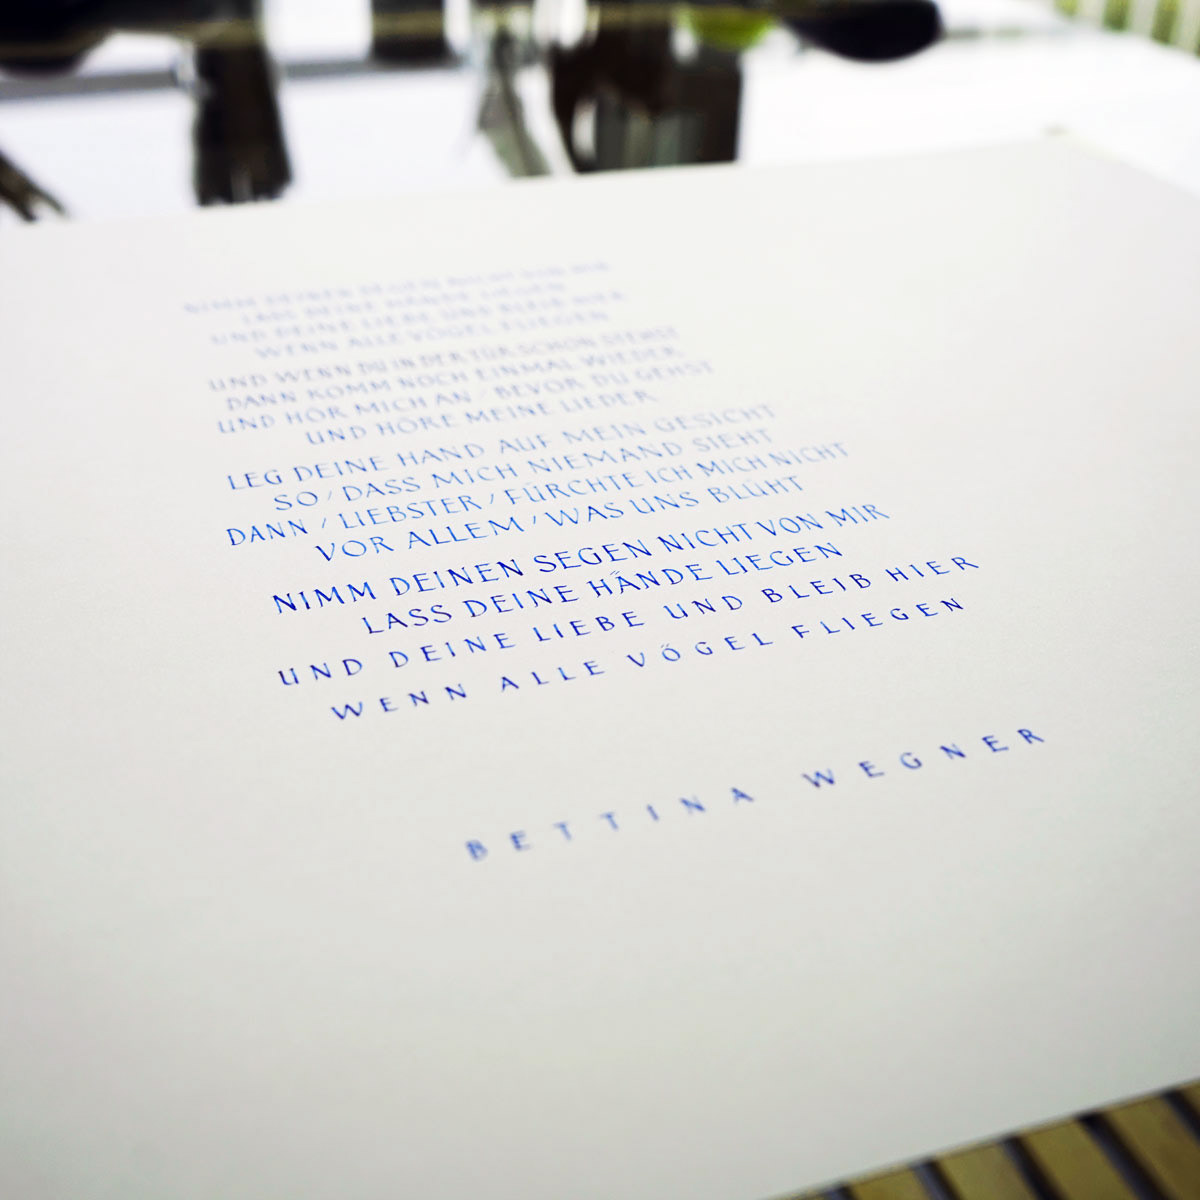 NIMM DEINEN SEGEN NICHT VON MIR
LASS DEINE HÄNDE LIEGEN
UND DEINE LIEBE UND BLEIB HIER
WENN ALLE VÖGEL FLIEGEN
UND WENN DU IN DER TÜR SCHON STEHST
DANN KOMM NOCH EINMAL WIEDER
UND HÖR MICH AN / BEVOR DU GEHST
UND HÖRE MEINE LIEDER
LEG DEINE HAND AUF MEIN GESICHT
SO / DASS MICH NIEMAND SIEHT
DANN / LIEBSTER / FÜRCHTE ICH MICH NICHT
VOR ALLEM / WAS UNS BLÜHT
NIMM DEINEN SEGEN NICHT VON MIR
LASS DEINE HÄNDE LIEGEN
UND DEINE LIEBE UND BLEIB HIER
WENN ALLE VÖGEL FLIEGEN
BETTINA WEGNER